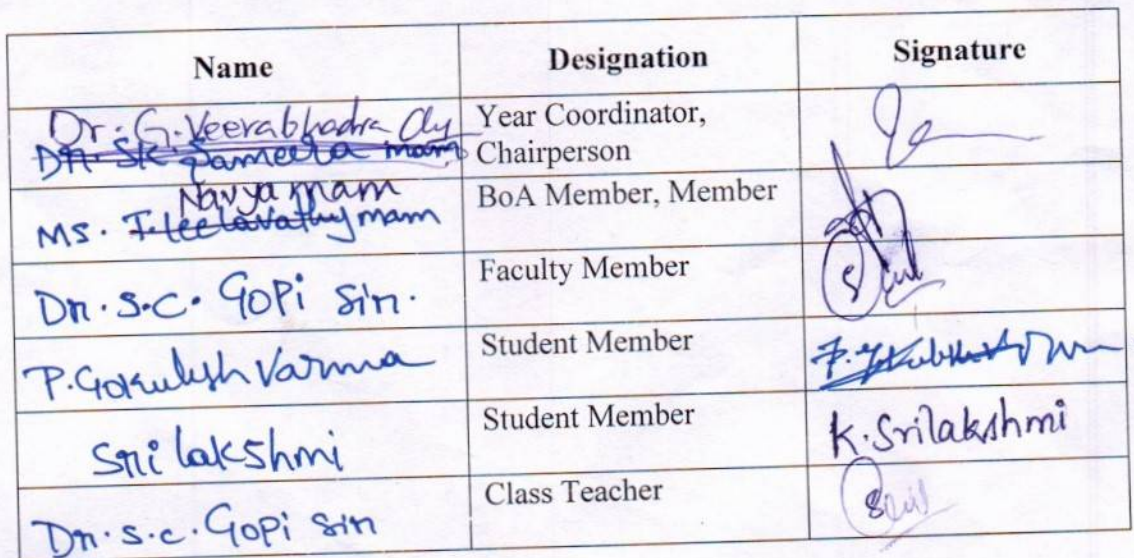 Name Designation Signature
Dr. G. Veerabhadra Year Coordinator,
Dr. SK Sameera mam Chairperson
Navya mam
Ms. T. Leelavathy mam BoA Member, Member
Dr. S.C. Gopi Sir. Faculty Member
P. Gokulesh Varma Student Member
Sri lakshmi Student Member K. Srilakshmi
Dr. S.C. Gopi Sir Class Teacher